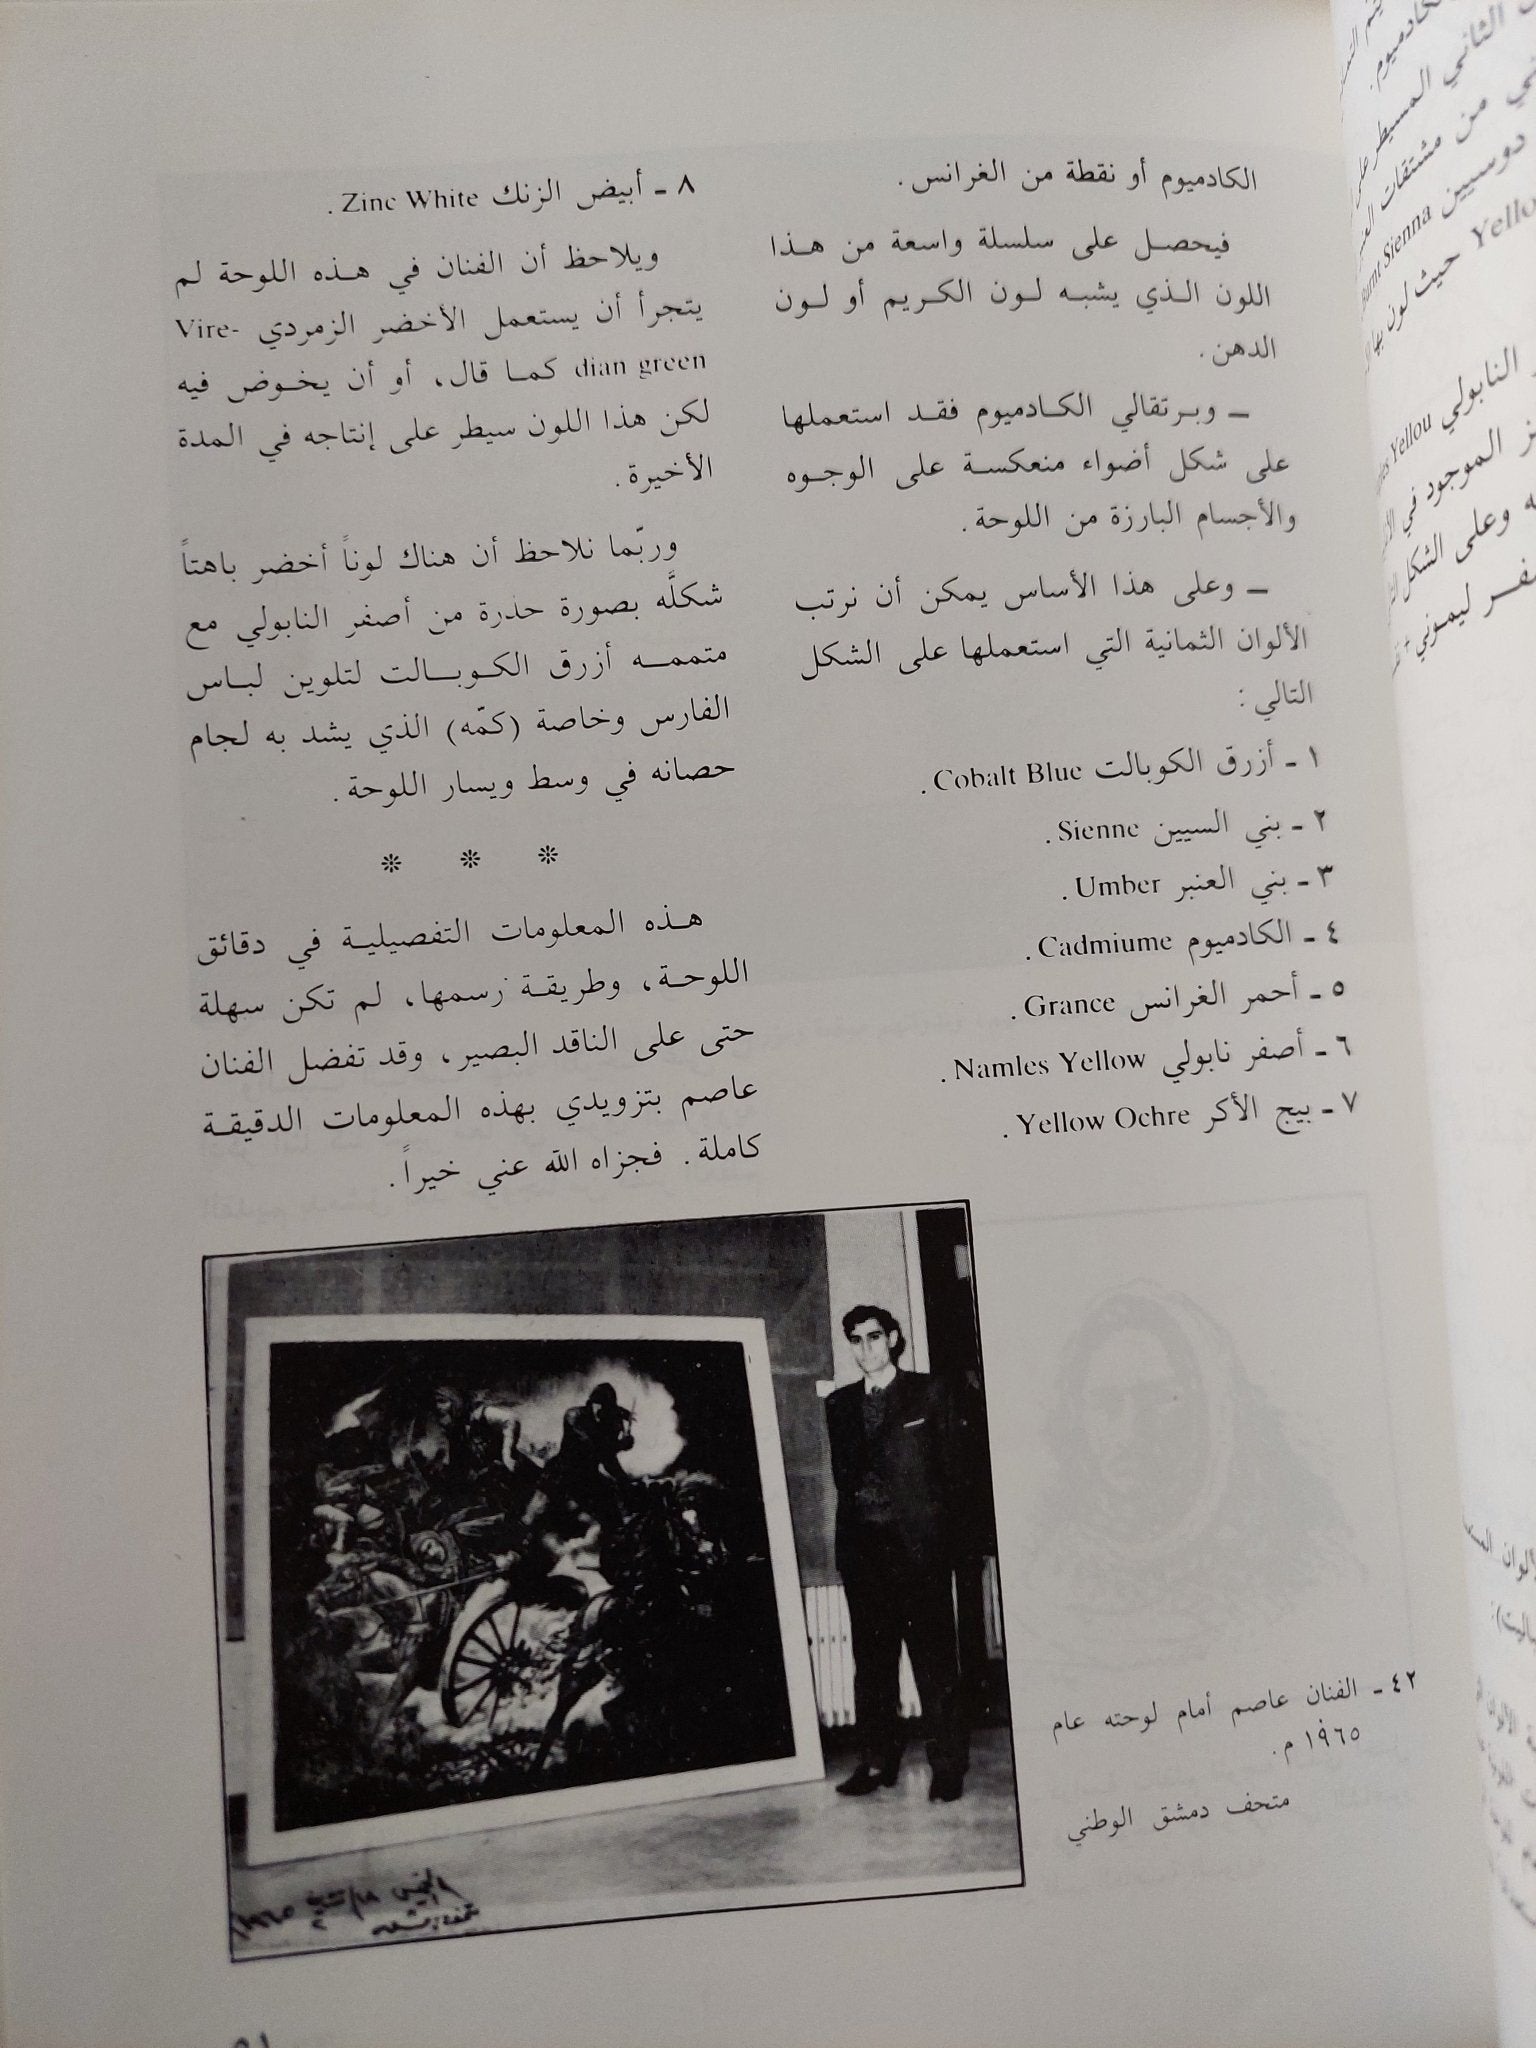 الكادميوم أو نقطة من الغرانس .
فيحصل على سلسلة واسعة من هذا
اللون الذي يشبه لون الكريم أو لون
الدهن .
ـ وبرتقالي الكادميوم فقد استعملها
على شكل أضواء منعكسة على الوجوه
والأجسام البارزة من اللوحة .
ـ وعلى هذا الأساس يمكن أن نرتب
الألوان الثمانية التي استعملها على الشكل
التالي :
١ ـ أزرق الكوبالت Cobalt Blue .
٢ ـ بني السيين Sienne .
٣ ـ بني العنبر Umber .
٤ ـ الكادميوم Cadmiume .
٥ ـ أحمر الغرانس Grance .
٦ ـ أصفر نابولي Namles Yellow .
٧ ـ بيج الأكر Yellow Ochre .
٨ ـ أبيض الزنك Zinc White .
ويلاحظ أن الفنان في هذه اللوحة لم
يتجرأ أن يستعمل الأخضر الزمردي Vire-
dian green كما قال، أو أن يخوض فيه
لكن هذا اللون سيطر على إنتاجه في المدة
الأخيرة .
وربّما نلاحظ أن هناك لوناً أخضر باهتاً
شكلَّه بصورة حذرة من أصفر النابولي مع
متممه أزرق الكوبالت لتلوين لباس
الفارس وخاصة (كمّه) الذي يشد به لجام
حصانه في وسط ويسار اللوحة .
* * *
هذه المعلومات التفصيلية في دقائق
اللوحة، وطريقة رسمها، لم تكن سهلة
حتى على الناقد البصير، وقد تفضل الفنان
عاصم بتزويدي بهذه المعلومات الدقيقة
كاملة. فجزاه الله عني خيراً .
٤٢ ـ الفنان عاصم أمام لوحته عام
١٩٦٥ م.
متحف دمشق الوطني
الثاني المسيطر على
من مشتقات
دوسيين Burnt Sienna
حيث لون بها
النابولي Yellou
الموجود في
وعلى الشكل
ليموني +